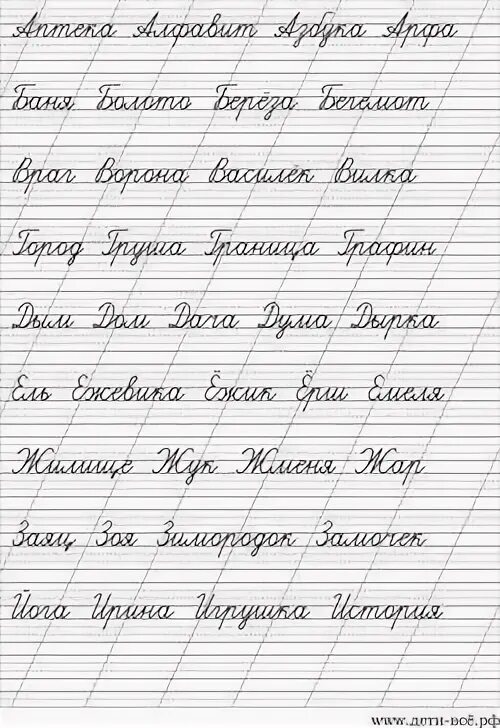 Аптека Алфавит Азбука Арфа
Баня Болото Берёза Бегемот
Враг Ворона Василёк Вилка
Город Груша Граница Графин
Дым Дом Дача Дума Дырка
Ель Ежевика Ёжик Ёрш Емеля
Жилище Жук Жменя Жар
Заяц Зоя Зимородок Замочек
Йога Ирина Игрушка История
www.дети-всё.рф